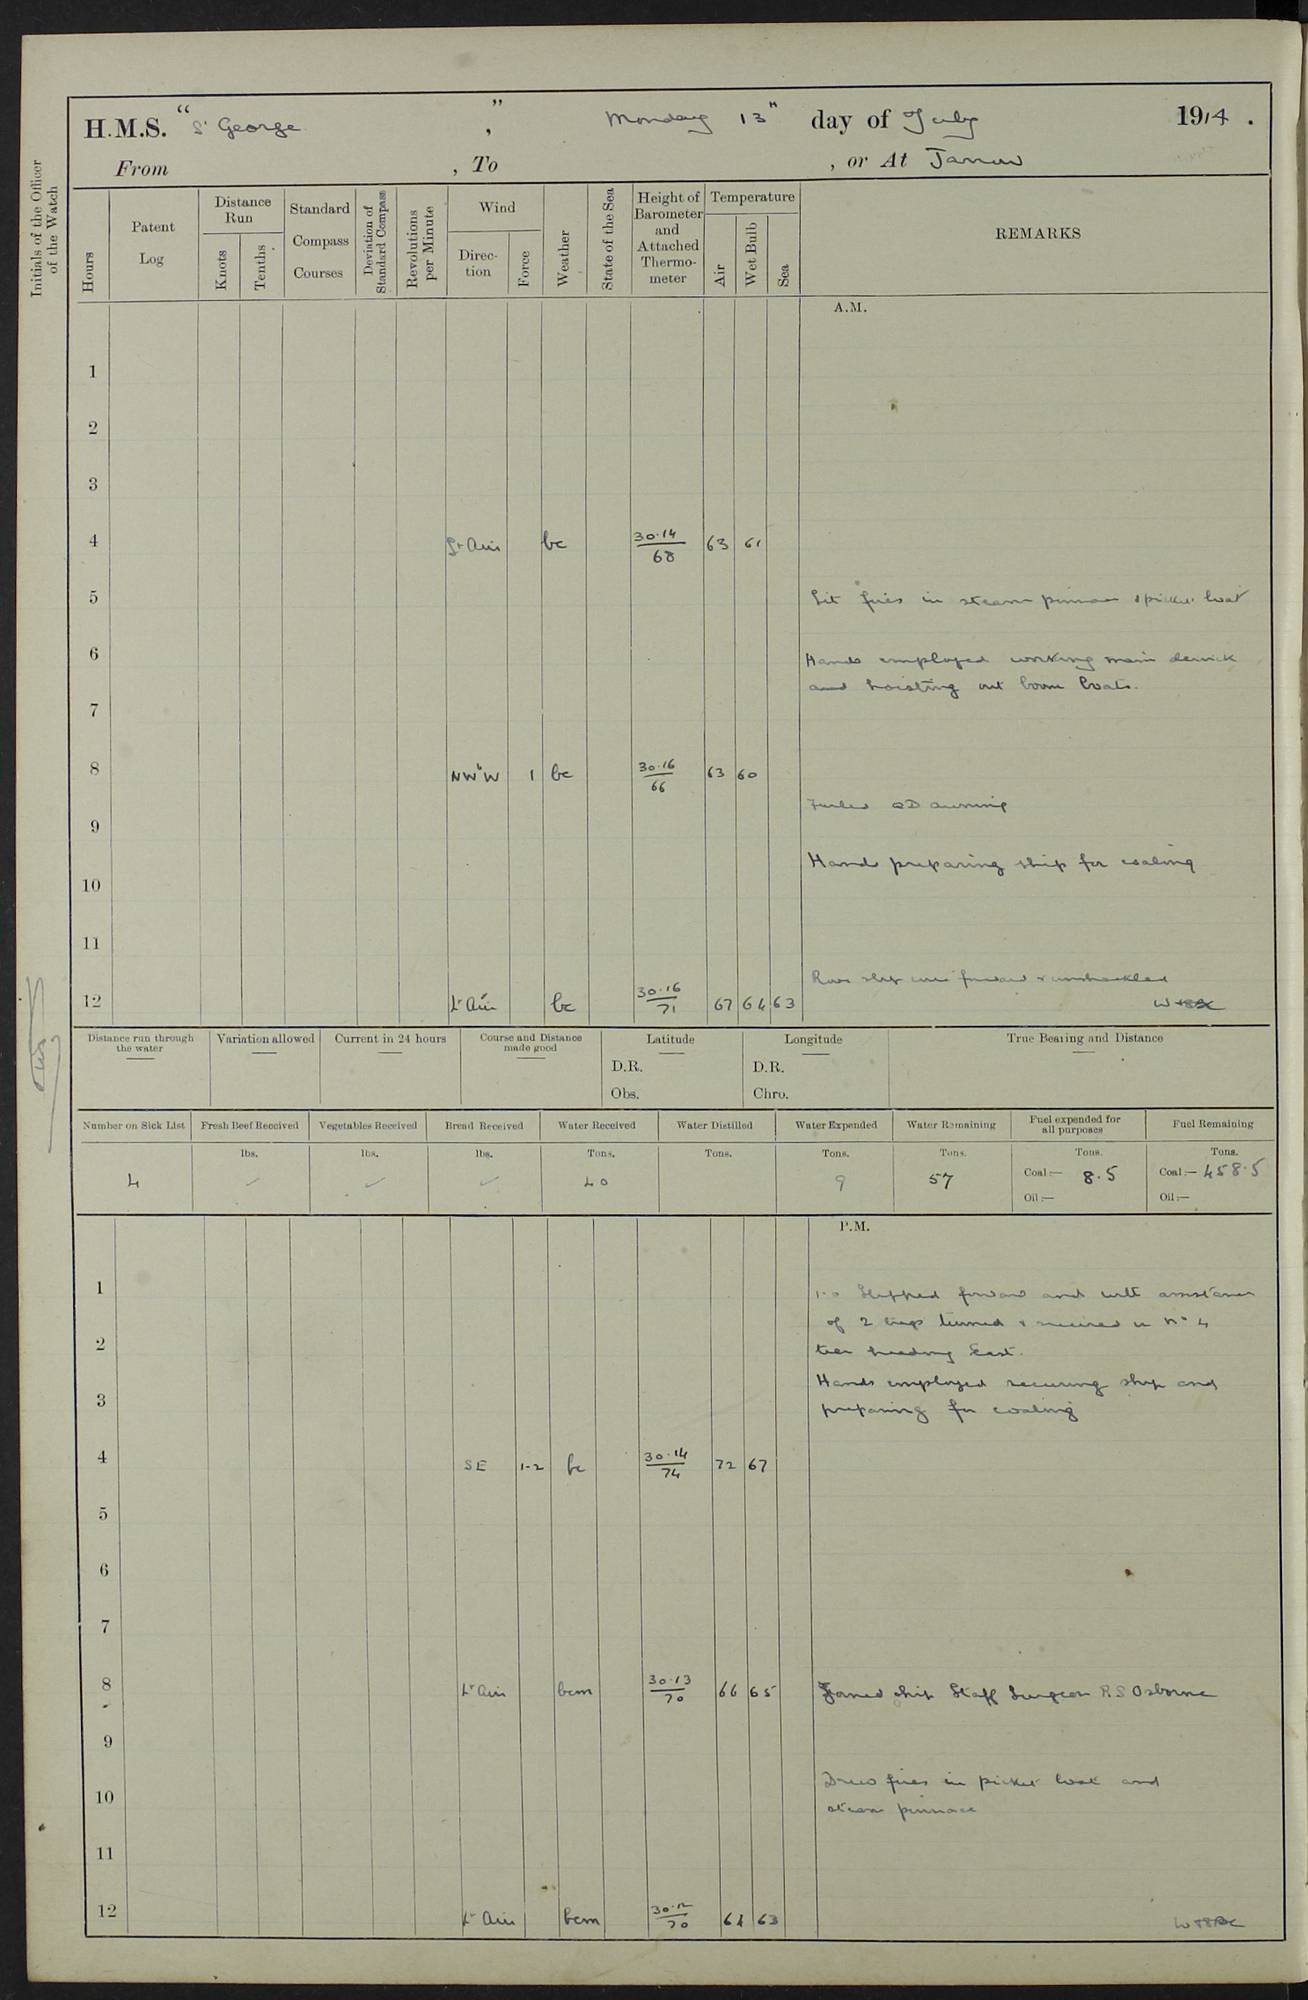 H.M.S. "St George", Monday 13th day of July 1914.
From , To , or At Jarrow
Initials of the Officer of the Watch
Hours
Patent Log
Distance Run
Knots
Tenths
Standard Compass Courses
Deviation of Standard Compass
Revolutions per Minute
Wind
Direction
Force
Weather
State of the Sea
Height of Barometer and Attached Thermometer
Temperature
Air
Wet Bulb
Sea
REMARKS
A.M.
1
2
3
4 Lt Air bc 30.14/68 63 61
5 Lit fires in steam pinnace & picket boat
6 Hands employed working main derrick
and hoisting out boom boats.
7
8 NW"W 1 bc 30.16/66 63 60
Furled QD awning
9
Hands preparing ship for coaling
10
11
forward & unshackled
12 Lt Air bc 30.16/71 67 64 63
Distance run through the water
Variation allowed
Current in 24 hours
Course and Distance made good
Latitude
D.R.
Obs.
Longitude
D.R.
Chro.
True Bearing and Distance
Number on Sick List Fresh Beef Received Vegetables Received Bread Received Water Received Water Distilled Water Expended Water Remaining Fuel expended for all purposes Fuel Remaining
lbs. lbs. lbs. Tons. Tons. Tons. Tons. Tons. Tons.
4 ✓ ✓ ✓ 40 9 57 Coal:— 8.5 Coal:— 458.5
Oil:— Oil:—
P.M.
1 1.0 Slipped forward and with assistance
of 2 tugs turned & secured in No 4
2
tier heading East.
Hands employed securing ship and
3
preparing for coaling
4 SE 1-2 bc 30.14/74 72 67
5
6
7
8 Lt Air bcm 30.13/70 66 65 Joined ship Staff Surgeon R S Osborne
9
Drew fires in picket boat and
10
steam pinnace
11
12 Lt Air bcm 30.12/70 64 63